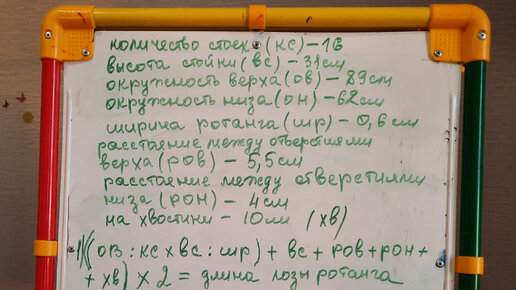 количество стоек (кс) – 16
высота стойки (вс) – 31 см
окружность верха (ов) – 89 см
окружность низа (он) – 62 см
ширина ротанга (шр) – 0,6 см
расстояние между отверстиями
верха (ров) – 5,5 см
расстояние между отверстиями
низа (рон) – 4 см
на хвостики – 10 см (хв)
1)((ов : кс х вс : шр) + вс + ров + рон +
+ хв) х 2 = длина лозы ротанга